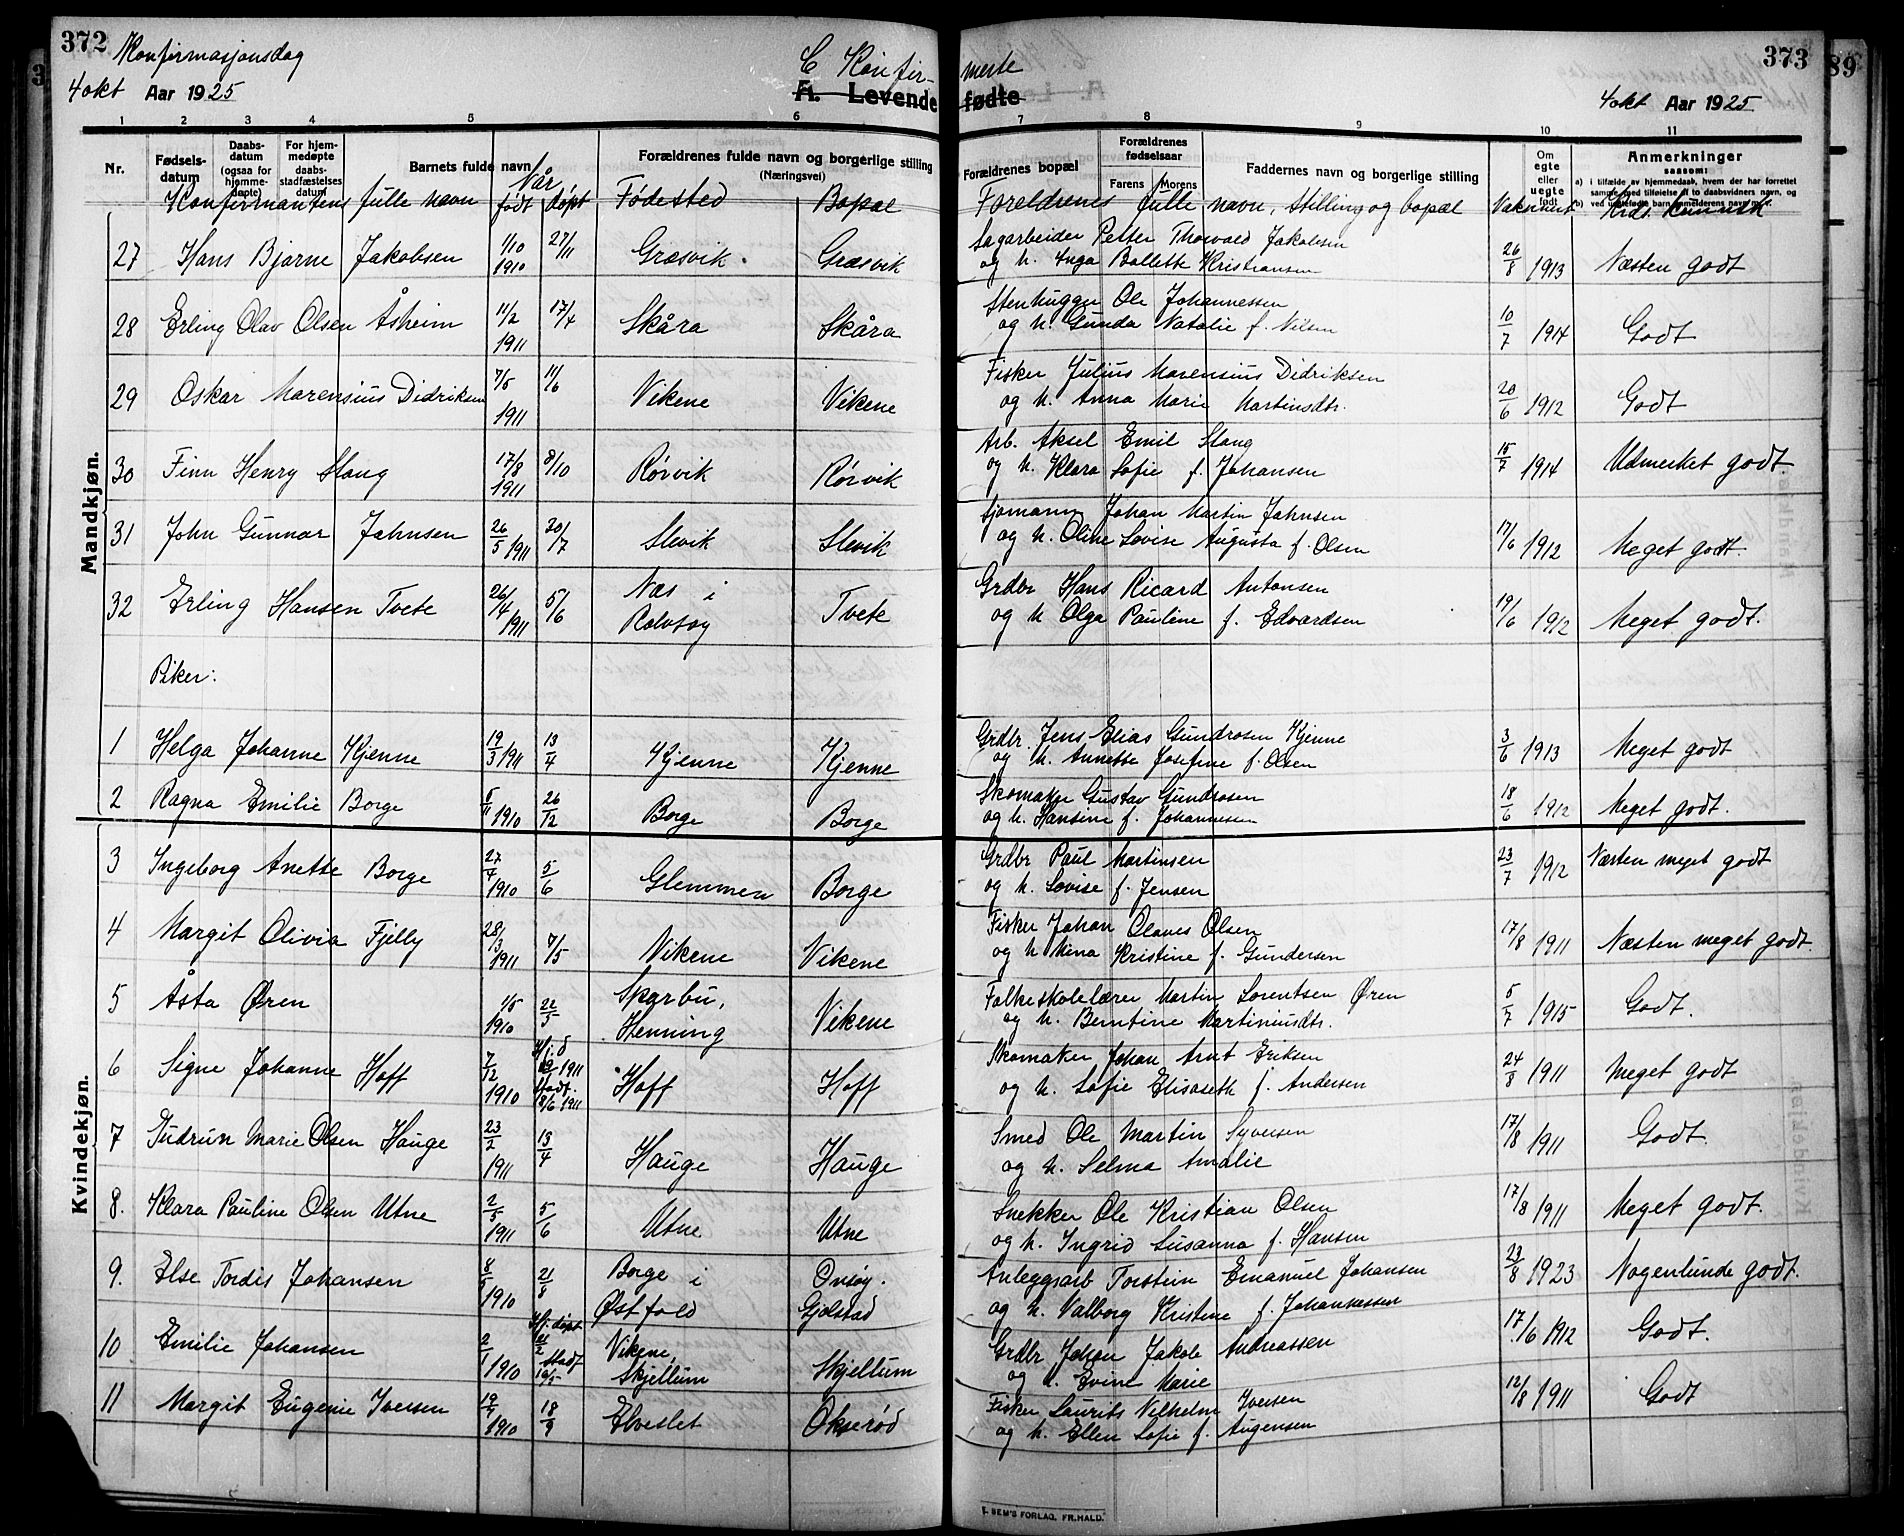 372
Konfirmasjonsdag
4 okt Aar 1925
C Konfir-
A. Levende
1 2 3 4 5 6
Nr.
Fødsels-
datum
Daabs-
datum
(ogsaa for
hjemme-
døpte)
For hjem-
medøpte
daabs-
stadfæstelses
datum
Barnets fulde navn
Forældrenes fulde navn og borgerlige stilling
(Næringsvei)
Konfirmantens fulle navn Når født døpt Fødested Bopæl
Mandkjøn.
27 Hans Bjarne Jakobsen 1/10 1910 27/11 Græsvik Græsvik
28 Erling Olav Olsen Åsheim 11/2 1911 17/4 Skåra Skåra
29 Oskar Marensius Didriksen 7/5 1911 11/6 Vikene Vikene
30 Finn Henry Stang 17/8 1911 8/10 Rørvik Rørvik
31 John Gunnar Jahnsen 26/5 1911 20/7 Slevik Slevik
32 Erling Hansen Tvete 26/4 1911 5/6 Næs i Rolvsøy Tvete
Piker:
1 Helga Johanne Kjenne 19/3 1911 13/4 Kjenne Kjenne
2 Ragna Emilie Borge 5/11 1910 26/12 Borge Borge
Kvindekjøn.
3 Ingeborg Anette Borge 27/4 1910 5/6 Glemmen Borge
4 Margit Olivia Fjelly 28/3 1911 7/5 Vikene Vikene
5 Åsta Øren 1/5 1910 22/5 Sparbu, Henning Vikene
6 Signe Johanne Hoff 7/12 1910 Hj.d 1911 Stadf. 18/6 1911 Hoff Hoff
7 Gudrun Marie Olsen Hauge 23/2 1911 13/4 Hauge Hauge
8. Klara Pauline Olsen Utne 2/5 1911 5/6 Utne Utne
9. Else Tordis Johansen 8/5 1910 21/8 Borge i Østfold Onsøy. Gjølstad
10 Emilie Johansen 2/1 1910 Hj. døpt 21/2 Stadf 16/5 Vikene, Skjellum Skjellum
11 Margit Eugenie Iversen 19/7 1910 18/9 Elveslet Økserød
373
merte
fødte
4 okt Aar 1925
7 8 9 10 11
Forældrenes bopæl
Forældrenes
fødselsaar
Farens Morens
Faddernes navn og borgerlige stilling
Om
egte
eller
uegte
født
Anmerkninger
saasom:
a) i tilfælde av hjemmedaab, hvem der har forrettet
samme, med tilføielse af to daabsvidners navn, og
b) ved uegtefødte barn anmelderens navn
Foreldrenes fulle navn, stilling og bopæl Vaksinert Krds. kunnsk
Sagarbeider Petter Thorvald Jakobsen
og h. Inga Bollette Kristiansen 26/8 1913 Næsten godt
Stenhugger Ole Johannessen
og h. Gunda Natalie f. Nilsen 10/7 1914 Godt
Fisker Julius Marensius Didriksen
og h. Anna Marie Martinsdtr. 20/6 1912 Godt
Arb. Aksel Emil Stang
og h. Klara Sofie f. Johansen 15/7 1914 Udmerket godt.
Sjømann Johan Martin Jahnsen
og h. Oline Lovise Augusta f. Olsen 17/6 1912 Meget godt.
Grdbr Hans Ricard Antonsen
og h. Olga Pauline f. Edvardsen 19/6 1912 Meget godt.
Grdbr. Jens Elias Gundrosen Kjenne
og h. Annette Josefine f. Olsen 3/6 1913 Meget godt
Skomaker Gustav Gundrosen
og h. Hansine f. Johannesen 18/6 1912 Meget godt.
Grdbr Paul Martinsen
og h. Lovise f. Jensen 23/7 1912 Næsten meget godt
Fisker Johan Olaves Olsen
og h Mina Kristine f. Gundersen 17/8 1911 Næsten meget godt.
Folkeskolelærer Martin Lorentsen Øren
og h. Berntine Martiniusdtr. 5/7 1915 Godt.
Skomaker Johan Arnt Eriksen
og h. Sofie Elisabeth f. Andersen 24/8 1911 Meget godt
Smed Ole Martin Syversen
og h. Selma Amalie 17/8 1911 Godt.
Snekker Ole Kristian Olsen
og h. Ingrid Susanna f. Hansen 17/8 1911 Meget godt.
Anleggsarb Torstein Emanuel Johansen
og h. Valborg Kristine f. Johannessen 23/8 1923 Nogenlunde godt.
Grdbr Johan Jakob Andreassen
og h. Evine Marie 17/6 1912 Godt.
Fisker Laurits Vilhelm Iversen
og h. Ellen Sofie f. Augensen 12/8 1911 Godt
E. SEM'S FORLAG, FR.HALD.
89